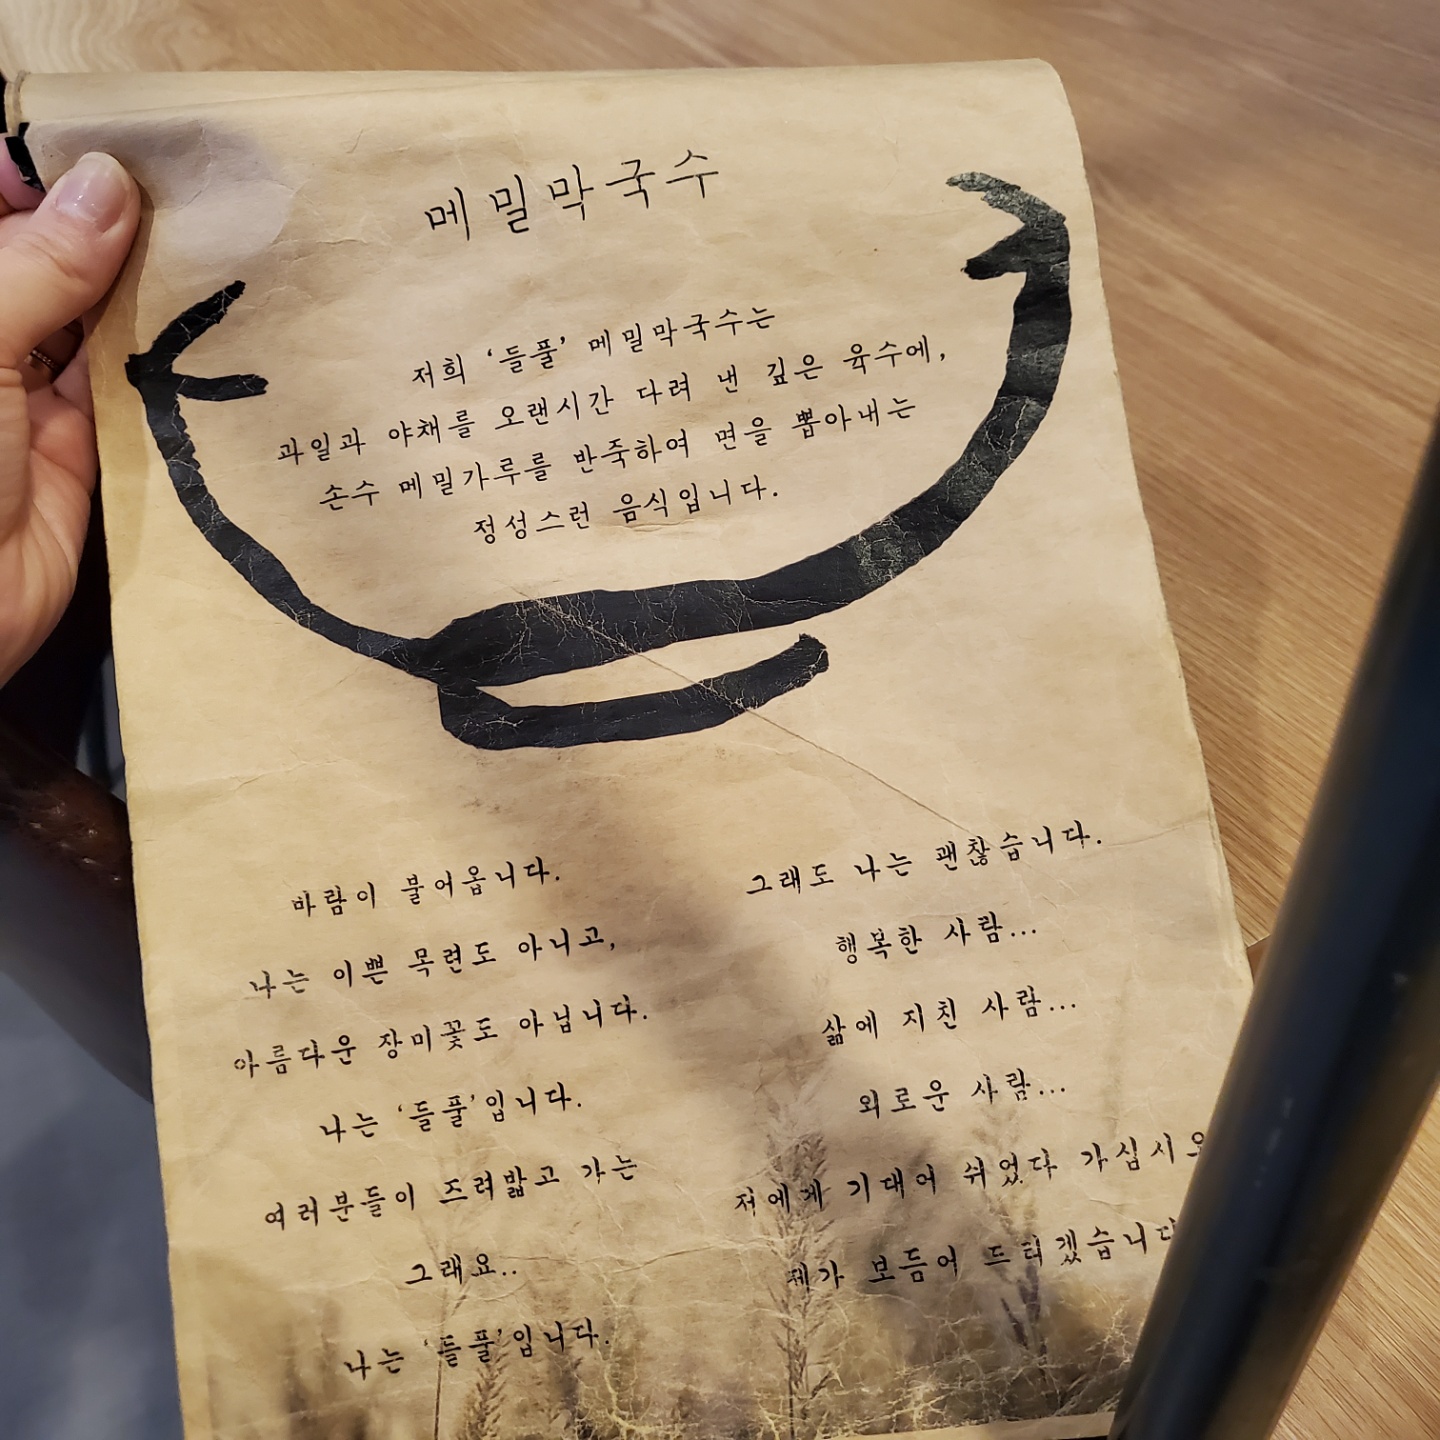 메밀막국수
저희 '들풀' 메밀막국수는
과일과 야채를 오랜시간 다려 낸 깊은 육수에,
손수 메밀가루를 반죽하여 면을 뽑아내는
정성스런 음식입니다.
바람이 불어옵니다.
나는 이쁜 목련도 아니고,
아름다운 장미꽃도 아닙니다.
나는 '들풀'입니다.
여러분들이 즈려밟고 가는
그래요..
나는 '들풀'입니다.
그래도 나는 괜찮습니다.
행복한 사람...
삶에 지친 사람...
외로운 사람...
저에게 기대어 쉬었다 가십시오
제가 보듬어 드리겠습니다